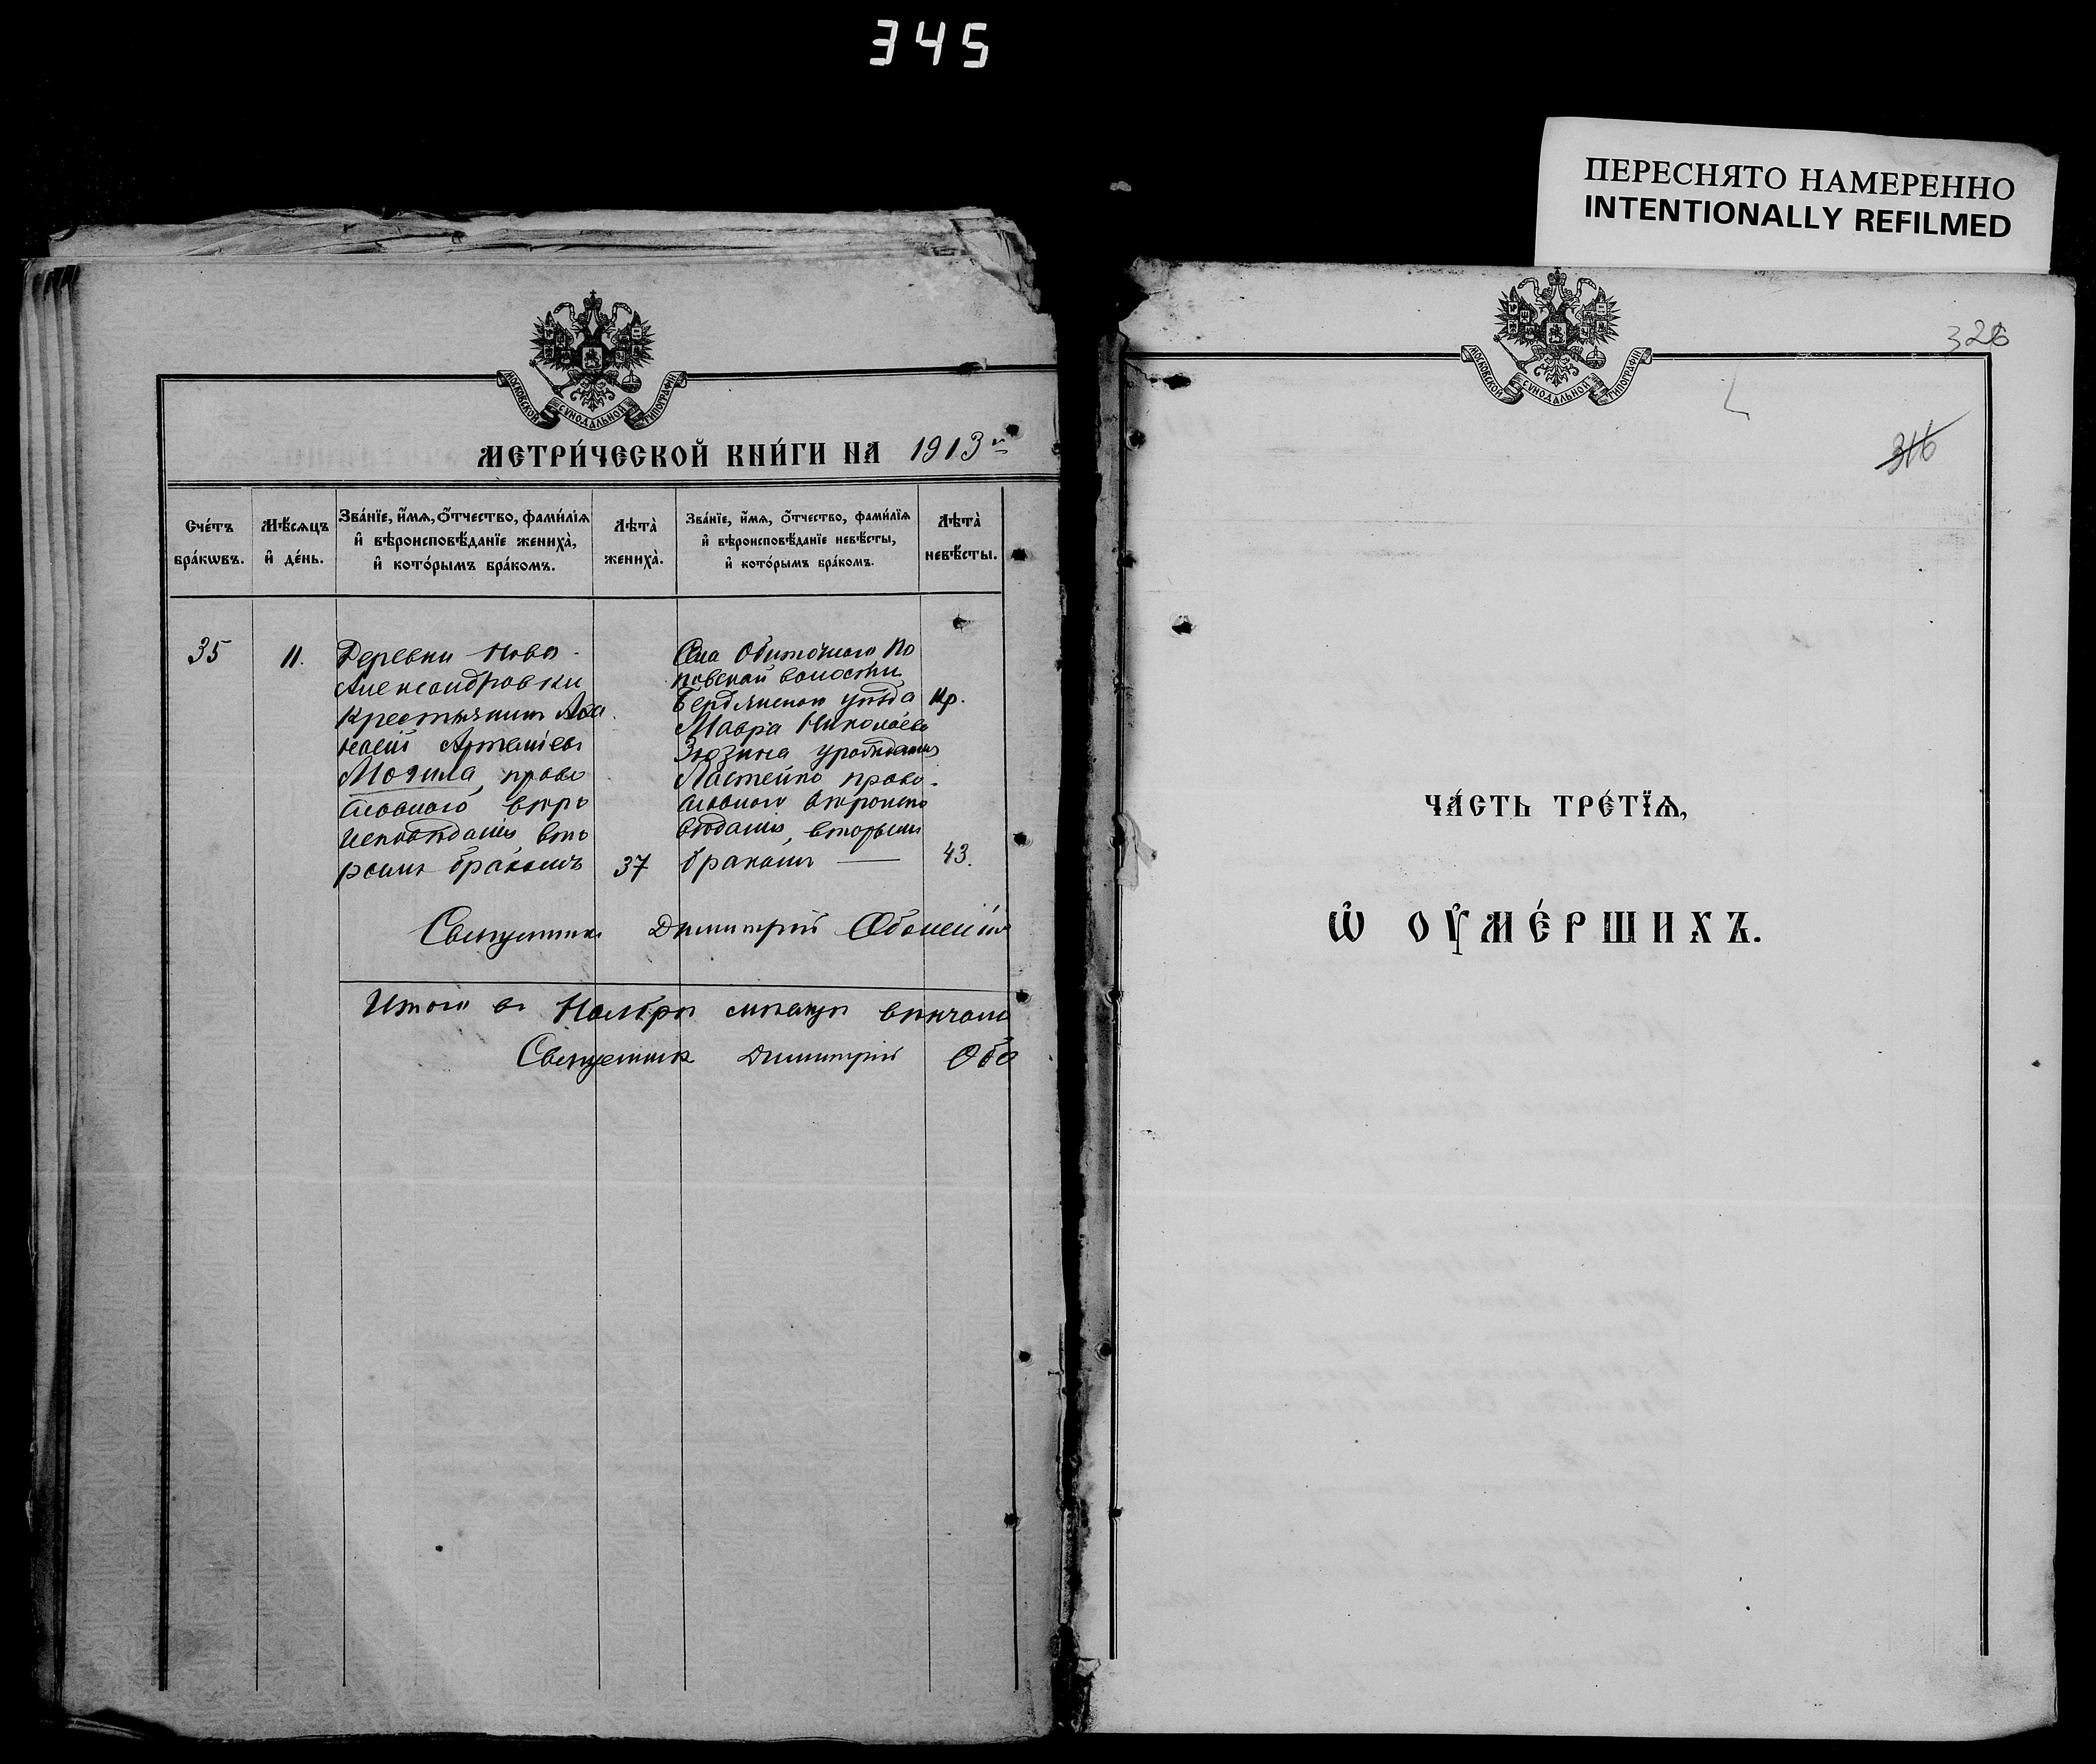 345
ПЕРЕСНЯТО НАМЕРЕННО
INTENTIONALLY REFILMED
МОСКОВСКОЙ СѴНОДАЛЬНОЙ ТИПОГРАФІИ
МЕТРИ́ЧЕСКОЙ КНИ́ГИ НА 1913 г
Сче́тъ бра́кѡвъ.
Мѣ́сѧцъ и҆ де́нь.
Зва́нїе, и҆́мѧ, ѻ҆́тчество, фами́лїѧ и҆ вѣроисповѣ́данїе жениха̀, и҆ кото́рымъ бра́комъ.
Лѣта̀ жениха̀.
Зва́нїе, и҆́мѧ, ѻ҆́тчество, фами́лїѧ и҆ вѣроисповѣ́данїе невѣ́сты, и҆ кото́рымъ бра́комъ.
Лѣта̀ невѣ́сты.
35
11.
Деревни Ново-
Александровки
крестьянинъ
Могила, право
славнаго вѣро
исповѣданія, вто
рымъ бракомъ
37
Села Обиточнаго По
повской волости
Бердянскаго уѣзда кр.
Мавра Николаева
Зюзина урожденная
Ластейко право-
славнаго вѣроиспо
вѣданія, вторымъ
бракомъ —
43.
Священникъ Димитрій
Итого въ Ноябрѣ мѣсяцѣ вѣнчано
Священникъ Димитрій Обо
МОСКОВСКОЙ СѴНОДАЛЬНОЙ ТИПОГРАФІИ
326
316
ЧА́СТЬ ТРЕ́ТЇѦ,
Ѡ҆ ОУ҆МЕ́РШИХЪ.